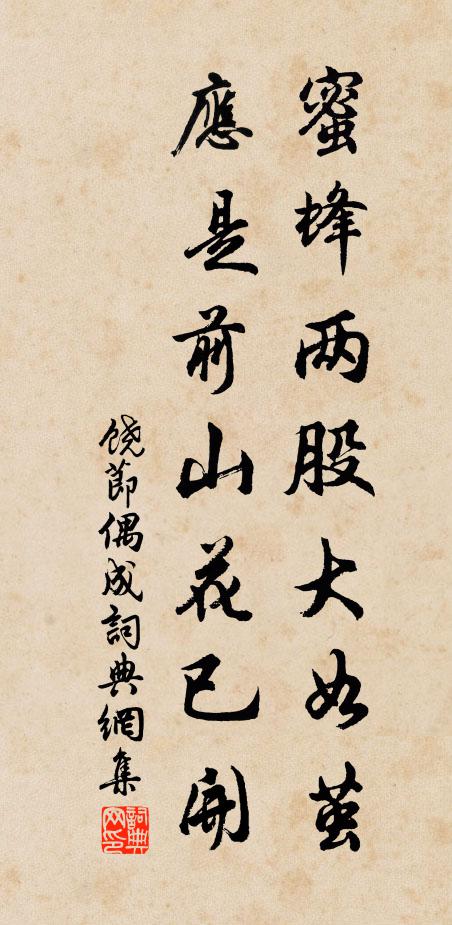 蜜蜂两股大如茧
應是前山花已開
饶節偶成詞典網集
詞典网印